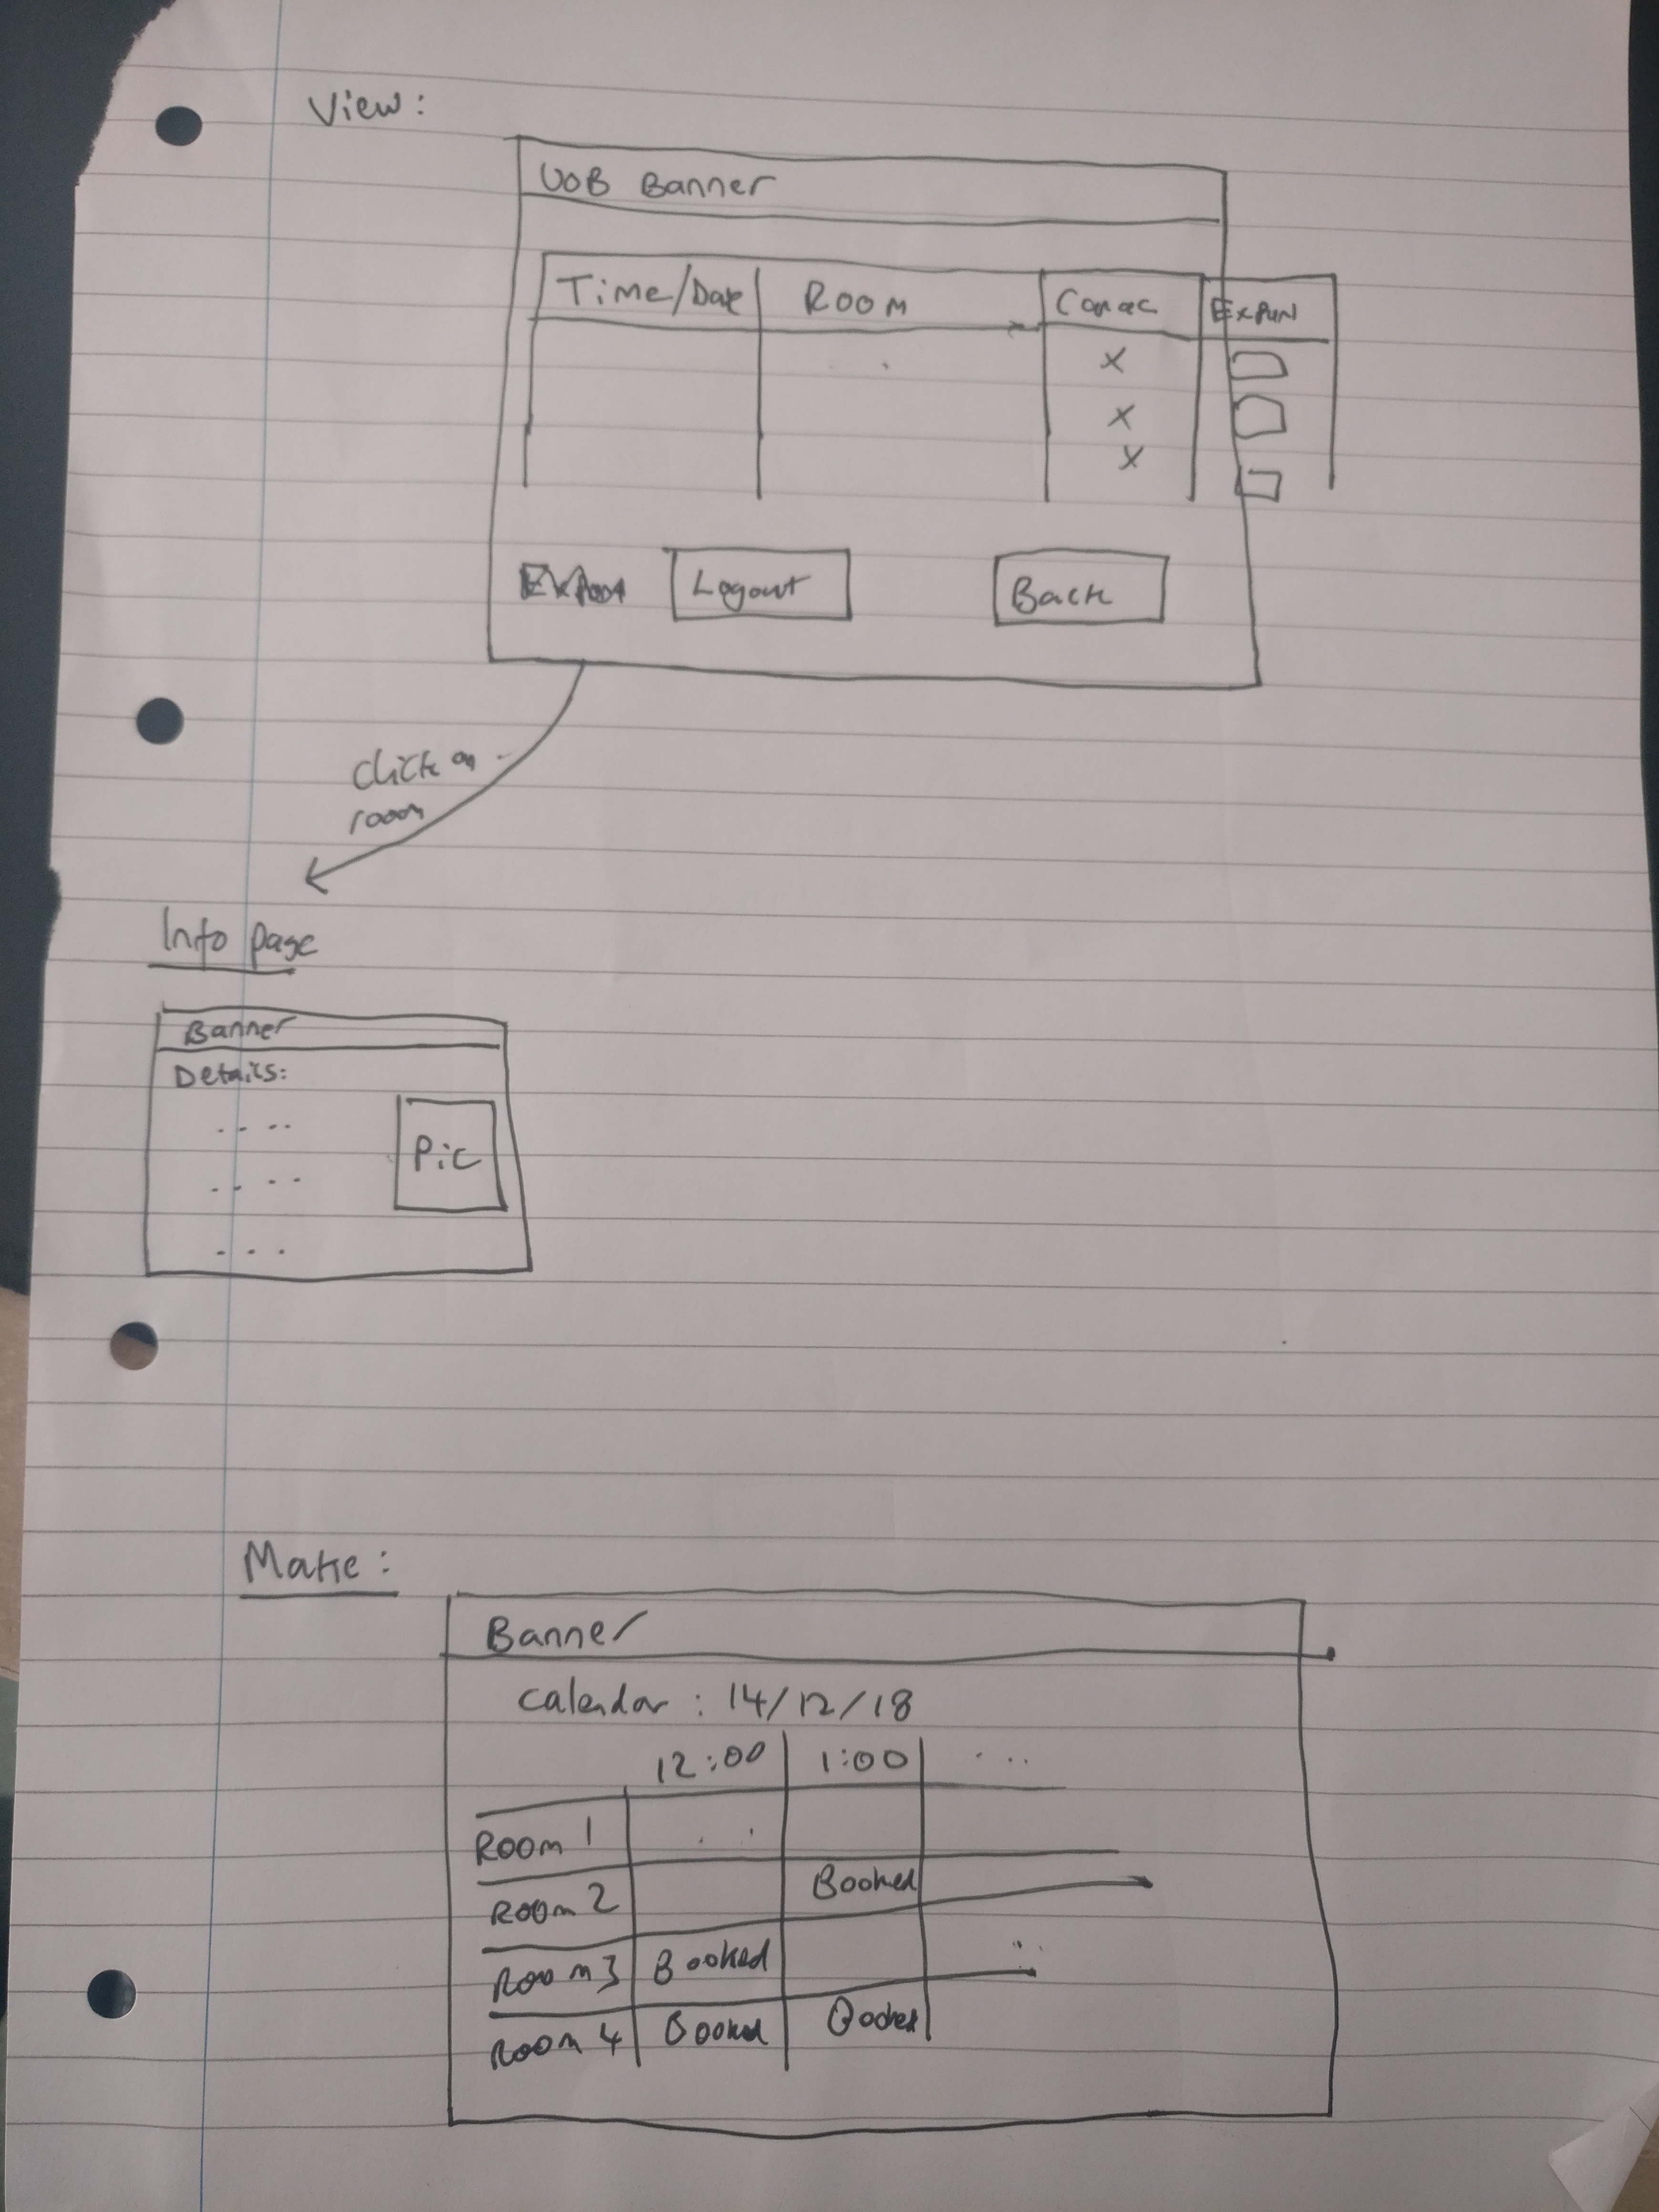 View:
UOB Banner
Time/Date Room Cancel
X
X
X
Logout Back
Click on
room
Info page
Banner
Details:
Pic
Make:
Banner
Calendar: 14/12/18
12:00 1:00 ...
Room 1
Room 2 Booked
Room 3 Booked
Room 4 Booked Booked